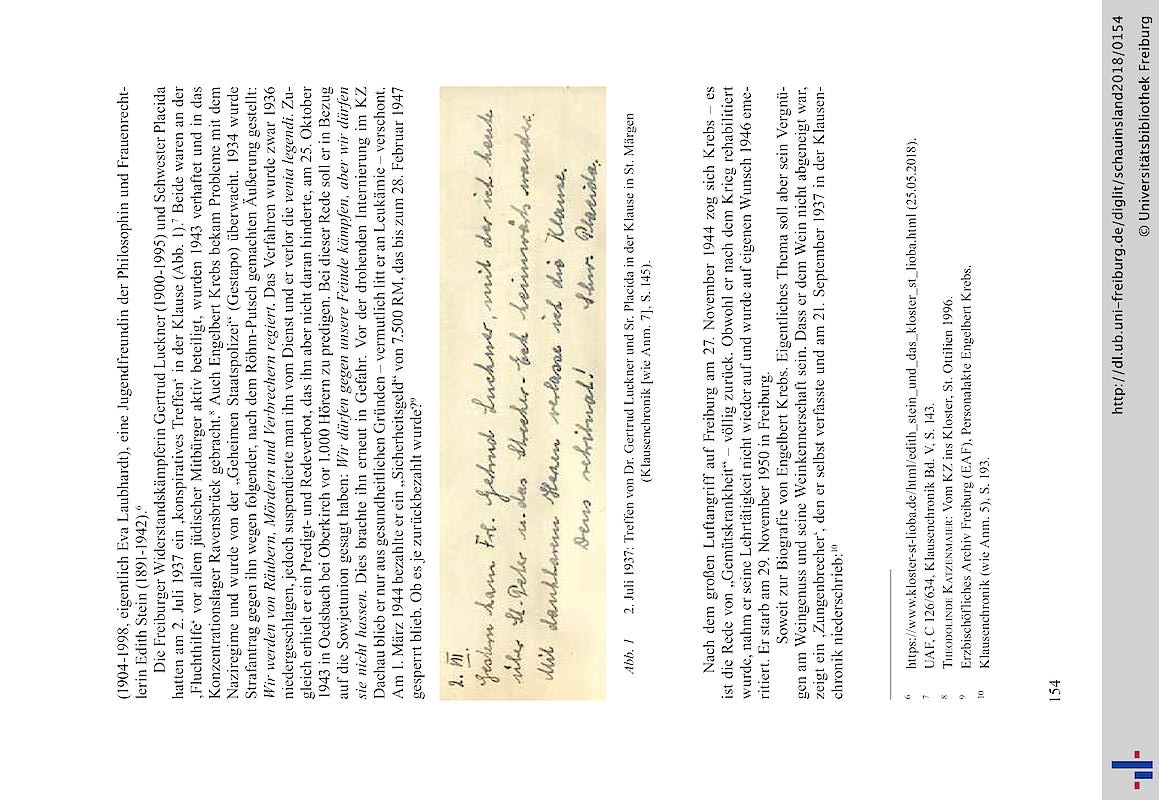 (1904-1998, eigentlich Eva Laubhardt), eine Jugendfreundin der Philosophin und Frauenrecht-
lerin Edith Stein (1891-1942).⁶
Die Freiburger Widerstandskämpferin Gertrud Luckner (1900-1995) und Schwester Placida
hatten am 2. Juli 1937 ein ‚konspiratives Treffen‘ in der Klause (Abb. 1).⁷ Beide waren an der
‚Fluchthilfe‘ vor allem jüdischer Mitbürger aktiv beteiligt, wurden 1943 verhaftet und in das
Konzentrationslager Ravensbrück gebracht.⁸ Auch Engelbert Krebs bekam Probleme mit dem
Naziregime und wurde von der „Geheimen Staatspolizei“ (Gestapo) überwacht. 1934 wurde
Strafantrag gegen ihn wegen folgender, nach dem Röhm-Putsch gemachten Äußerung gestellt:
Wir werden von Räubern, Mördern und Verbrechern regiert. Das Verfahren wurde zwar 1936
niedergeschlagen, jedoch suspendierte man ihn vom Dienst und er verlor die venia legendi. Zu-
gleich erhielt er ein Predigt- und Redeverbot, das ihn aber nicht daran hinderte, am 25. Oktober
1943 in Oedsbach bei Oberkirch vor 1.000 Hörern zu predigen. Bei dieser Rede soll er in Bezug
auf die Sowjetunion gesagt haben: Wir dürfen gegen unsere Feinde kämpfen, aber wir dürfen
sie nicht hassen. Dies brachte ihn erneut in Gefahr. Vor der drohenden Internierung im KZ
Dachau blieb er nur aus gesundheitlichen Gründen – vermutlich litt er an Leukämie – verschont.
Am 1. März 1944 bezahlte er ein „Sicherheitsgeld“ von 7.500 RM, das bis zum 28. Februar 1947
gesperrt blieb. Ob es je zurückbezahlt wurde?⁹
2. VII.
Gestern kam Frl. Gertrud Luckner, mit der ich heute
über St. Peter in das Streicher-Eck heimwärts wandre.
Mit dankbarem Herzen verlasse ich die Klause.
Deus retribuat! Schw. Placida.
Abb. 1 2. Juli 1937: Treffen von Dr. Gertrud Luckner und Sr. Placida in der Klause in St. Märgen
(Klausenchronik [wie Anm. 7], S. 145).
Nach dem großen Luftangriff auf Freiburg am 27. November 1944 zog sich Krebs – es
ist die Rede von „Gemütskrankheit“ – völlig zurück. Obwohl er nach dem Krieg rehabilitiert
wurde, nahm er seine Lehrtätigkeit nicht wieder auf und wurde auf eigenen Wunsch 1946 eme-
ritiert. Er starb am 29. November 1950 in Freiburg.
Soweit zur Biografie von Engelbert Krebs. Eigentliches Thema soll aber sein Vergnü-
gen am Weingenuss und seine Weinkennerschaft sein. Dass er dem Wein nicht abgeneigt war,
zeigt ein ‚Zungenbrecher‘, den er selbst verfasste und am 21. September 1937 in der Klausen-
chronik niederschrieb:¹⁰
⁶ https://www.kloster-st-lioba.de/html/edith_stein_und_das_kloster_st_lioba.html (25.05.2018).
⁷ UAF, C 126/634, Klausenchronik Bd. V, S. 143.
⁸ THEODOLINDE KATZENMAIER: Vom KZ ins Kloster, St. Ottilien 1996.
⁹ Erzbischöfliches Archiv Freiburg (EAF), Personalakte Engelbert Krebs.
¹⁰ Klausenchronik (wie Anm. 5), S. 193.
154
http://dl.ub.uni-freiburg.de/diglit/schauinsland2018/0154
© Universitätsbibliothek Freiburg